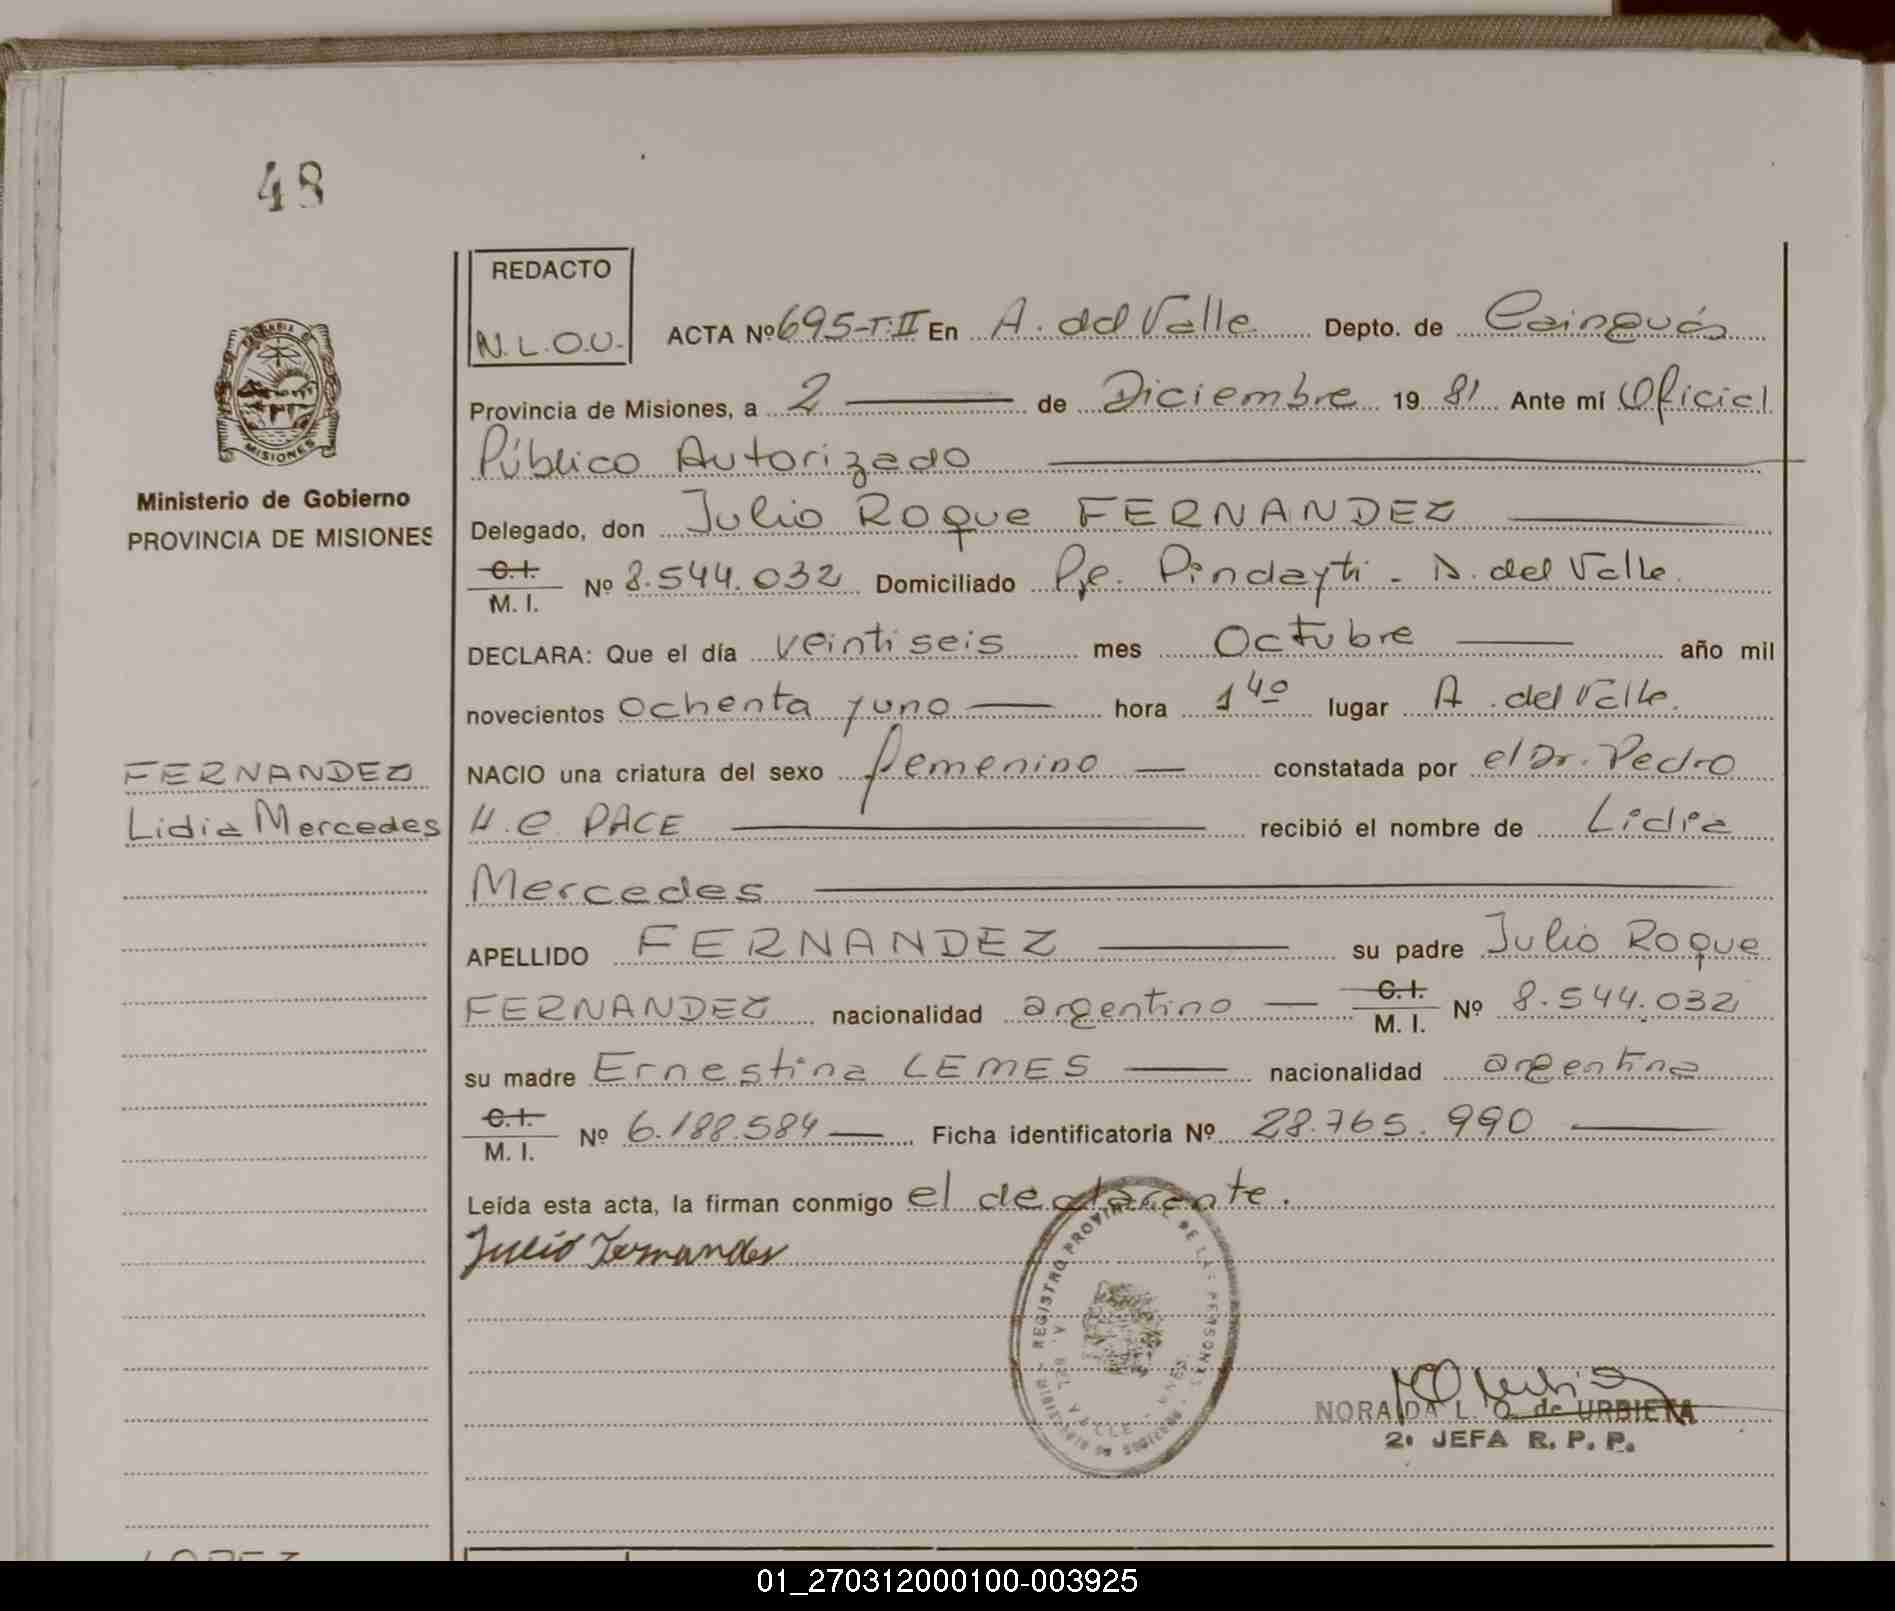 48
REDACTO
N.L.O.U.
ACTA Nº 695-T:II En A. del Valle Depto. de Cainguás
Provincia de Misiones, a 2 de Diciembre 19 81 Ante mí Oficial
Público Autorizado
MISIONES
Ministerio de Gobierno
PROVINCIA DE MISIONES
Delegado, don Julio Roque FERNANDEZ
C. I.
M. I. Nº 8.544.032 Domiciliado Pje. Pindayti - A. del Valle.
DECLARA: Que el día veintiseis mes Octubre año mil
novecientos ochenta y uno hora 1 40 lugar A. del Valle.
FERNANDEZ
Lidia Mercedes
NACIO una criatura del sexo femenino constatada por el Dr. Pedro
H. C. PACE recibió el nombre de Lidia
Mercedes
APELLIDO FERNANDEZ su padre Julio Roque
FERNANDEZ nacionalidad argentino C. I. M. I. Nº 8.544.032
su madre Ernestina LEMES nacionalidad argentina
C. I.
M. I. Nº 6.188.584 Ficha identificatoria Nº 28.765.990
Leída esta acta, la firman conmigo el declarante.
Julio Fernandez
REGISTRO PROVINCIAL DE LAS PERSONAS
A. DEL VALLE
MINISTERIO DE GOBIERNO
NORAIDA L. O. de URBIETA
2º JEFA R. P. P.
LOPEZ
01_270312000100-003925